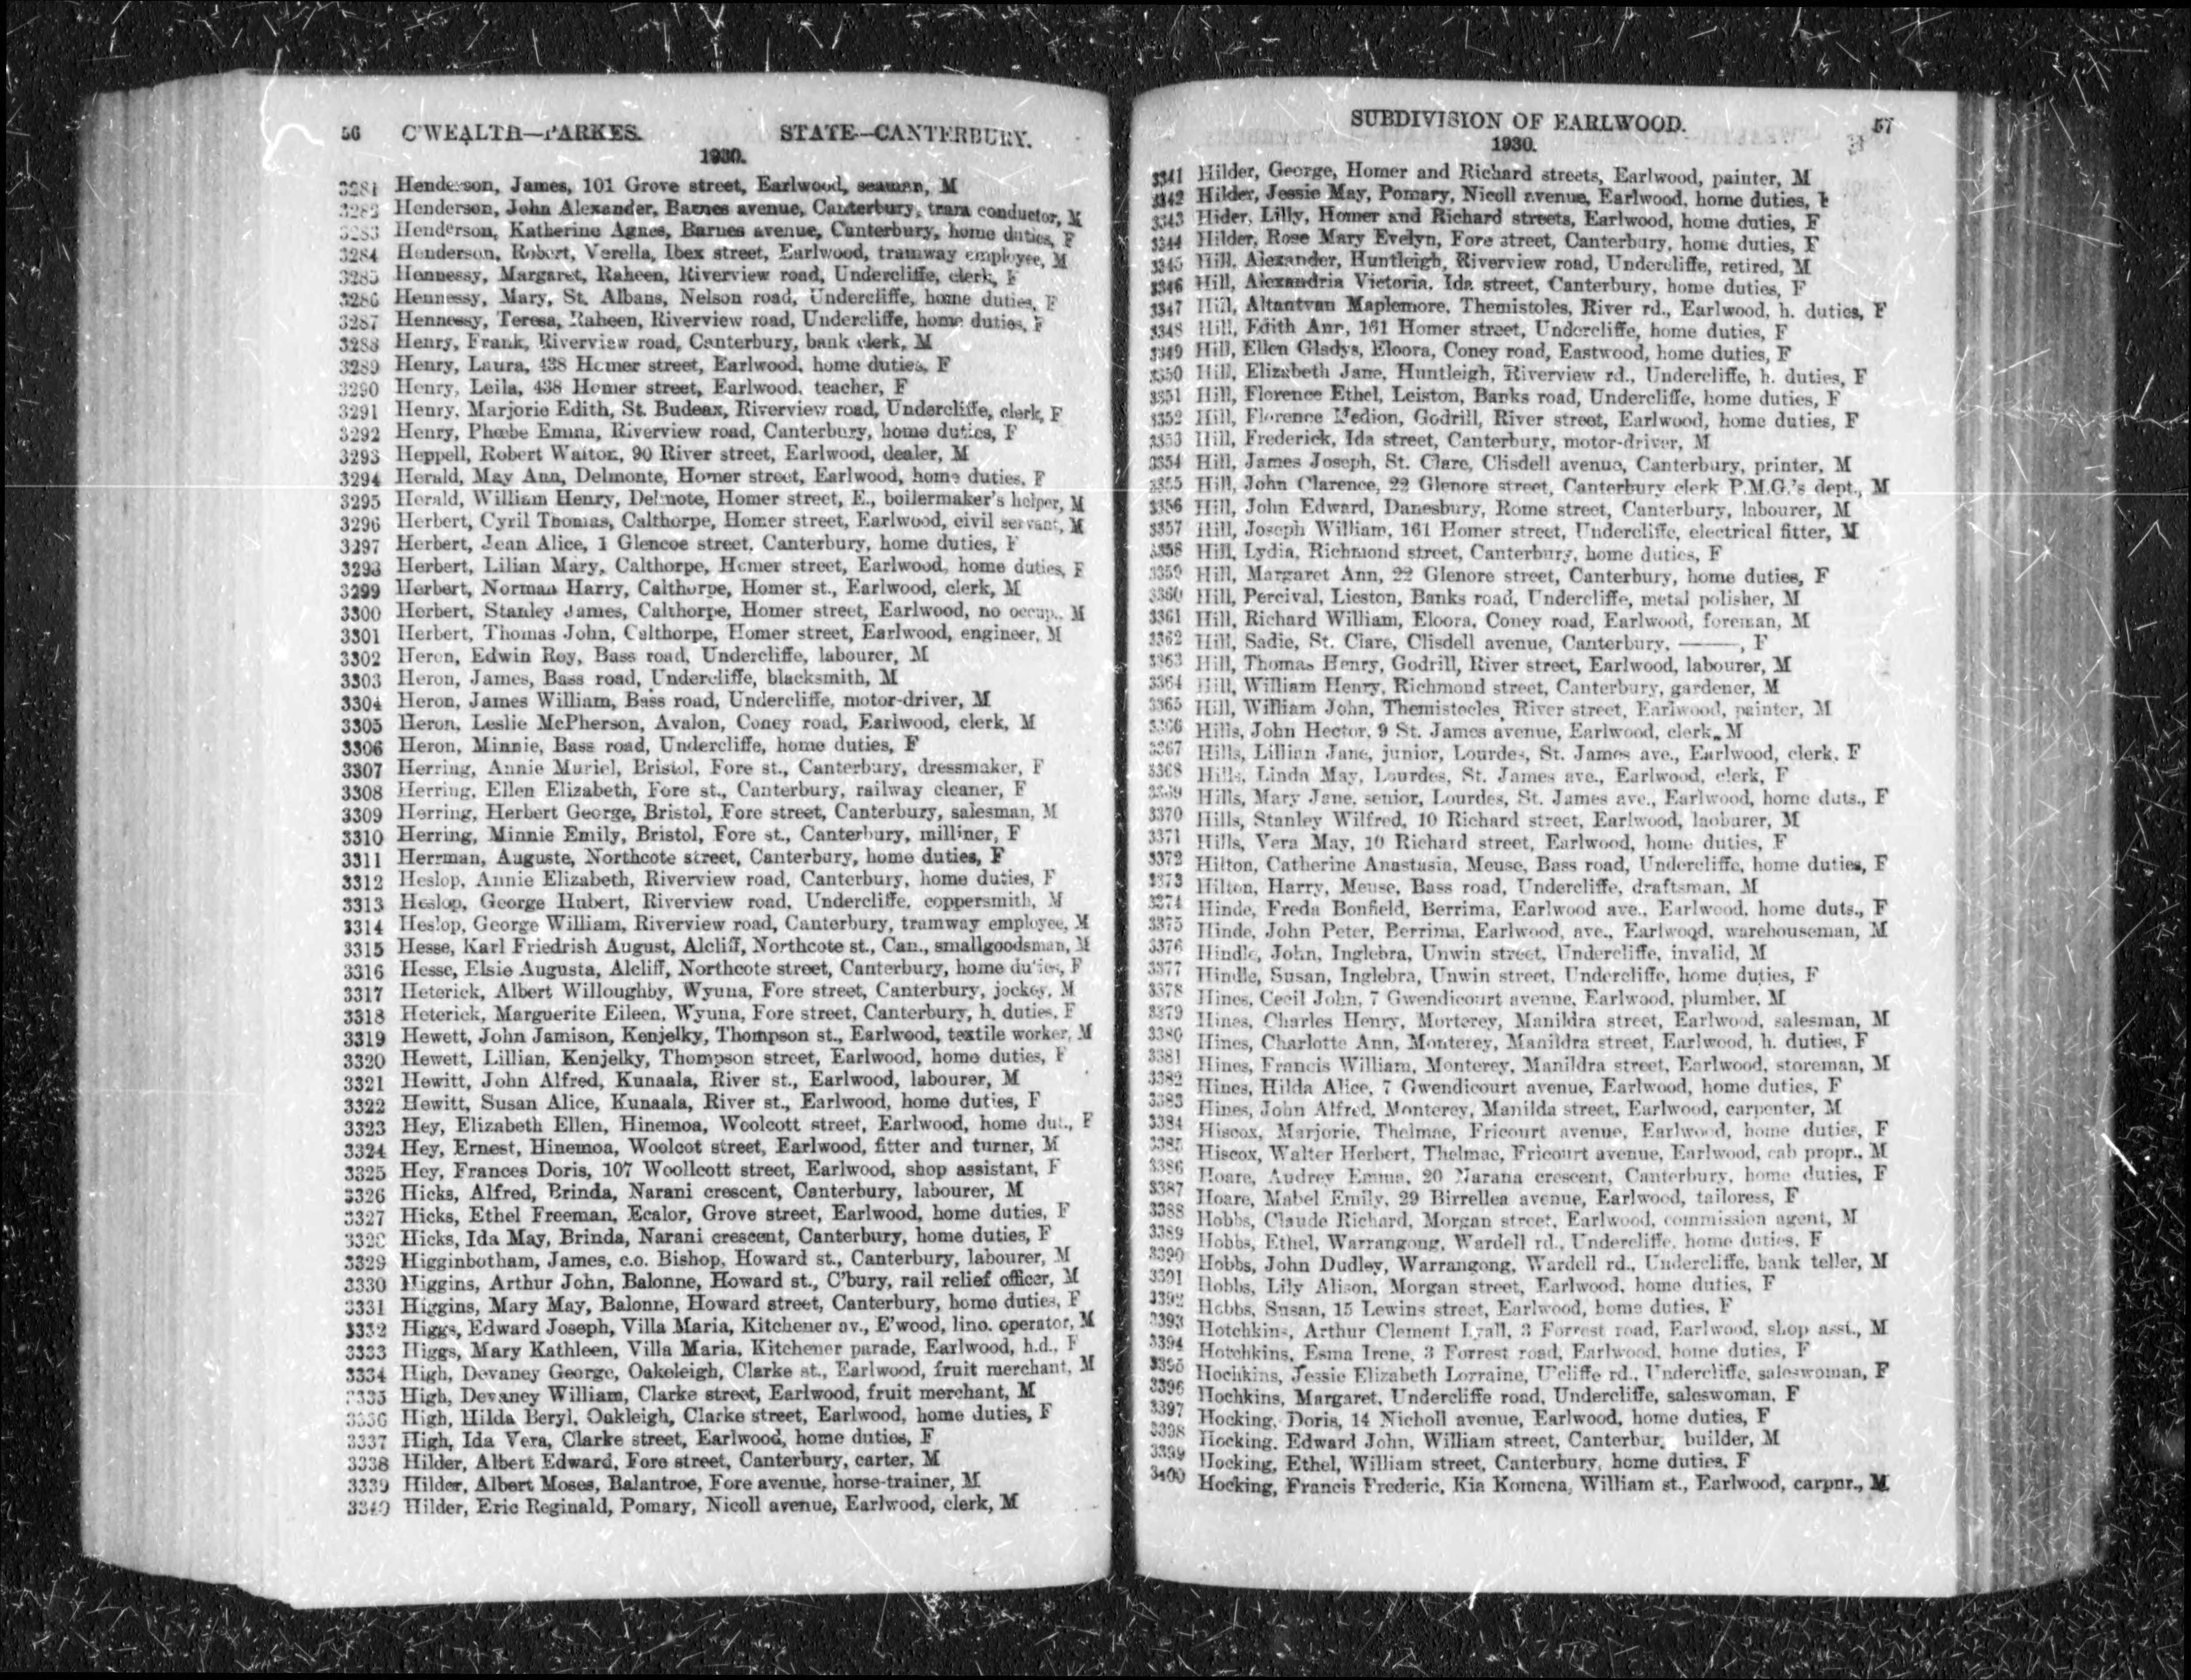 56 C'WEALTH—PARKES. STATE—CANTERBURY.
1930.
3281 Henderson, James, 101 Grove street, Earlwood, seaman, M
3282 Henderson, John Alexander, Barnes avenue, Canterbury, tram conductor, M
3283 Henderson, Katherine Agnes, Barnes avenue, Canterbury, home duties, F
3284 Henderson, Robert, Verella, Ibex street, Earlwood, tramway employee, M
3285 Hennessy, Margaret, Raheen, Riverview road, Undercliffe, clerk, F
3286 Hennessy, Mary, St. Albans, Nelson road, Undercliffe, home duties, F
3287 Hennessy, Teresa, Raheen, Riverview road, Undercliffe, home duties, F
3288 Henry, Frank, Riverview road, Canterbury, bank clerk, M
3289 Henry, Laura, 438 Homer street, Earlwood, home duties, F
3290 Henry, Leila, 438 Homer street, Earlwood, teacher, F
3291 Henry, Marjorie Edith, St. Budeax, Riverview road, Undercliffe, clerk, F
3292 Henry, Phœbe Emma, Riverview road, Canterbury, home duties, F
3293 Heppell, Robert Waiton, 90 River street, Earlwood, dealer, M
3294 Herald, May Ann, Delmonte, Homer street, Earlwood, home duties, F
3295 Herald, William Henry, Delmote, Homer street, E., boilermaker's helper, M
3296 Herbert, Cyril Thomas, Calthorpe, Homer street, Earlwood, civil servant, M
3297 Herbert, Jean Alice, 1 Glencoe street, Canterbury, home duties, F
3298 Herbert, Lilian Mary, Calthorpe, Homer street, Earlwood, home duties, F
3299 Herbert, Norman Harry, Calthorpe, Homer st., Earlwood, clerk, M
3300 Herbert, Stanley James, Calthorpe, Homer street, Earlwood, no occup., M
3301 Herbert, Thomas John, Calthorpe, Homer street, Earlwood, engineer, M
3302 Heron, Edwin Roy, Bass road, Undercliffe, labourer, M
3303 Heron, James, Bass road, Undercliffe, blacksmith, M
3304 Heron, James William, Bass road, Undercliffe, motor-driver, M
3305 Heron, Leslie McPherson, Avalon, Coney road, Earlwood, clerk, M
3306 Heron, Minnie, Bass road, Undercliffe, home duties, F
3307 Herring, Annie Muriel, Bristol, Fore st., Canterbury, dressmaker, F
3308 Herring, Ellen Elizabeth, Fore st., Canterbury, railway cleaner, F
3309 Herring, Herbert George, Bristol, Fore street, Canterbury, salesman, M
3310 Herring, Minnie Emily, Bristol, Fore st., Canterbury, milliner, F
3311 Herrman, Auguste, Northcote street, Canterbury, home duties, F
3312 Heslop, Annie Elizabeth, Riverview road, Canterbury, home duties, F
3313 Heslop, George Hubert, Riverview road, Undercliffe, coppersmith, M
3314 Heslop, George William, Riverview road, Canterbury, tramway employee, M
3315 Hesse, Karl Friedrish August, Alcliff, Northcote st., Can., smallgoodsman, M
3316 Hesse, Elsie Augusta, Alcliff, Northcote street, Canterbury, home duties, F
3317 Heterick, Albert Willoughby, Wyuna, Fore street, Canterbury, jockey, M
3318 Heterick, Marguerite Eileen, Wyuna, Fore street, Canterbury, h. duties, F
3319 Hewett, John Jamison, Kenjelky, Thompson st., Earlwood, textile worker, M
3320 Hewett, Lillian, Kenjelky, Thompson street, Earlwood, home duties, F
3321 Hewitt, John Alfred, Kunaala, River st., Earlwood, labourer, M
3322 Hewitt, Susan Alice, Kunaala, River st., Earlwood, home duties, F
3323 Hey, Elizabeth Ellen, Hinemoa, Woolcott street, Earlwood, home dut., F
3324 Hey, Ernest, Hinemoa, Woolcot street, Earlwood, fitter and turner, M
3325 Hey, Frances Doris, 107 Woollcott street, Earlwood, shop assistant, F
3326 Hicks, Alfred, Brinda, Narani crescent, Canterbury, labourer, M
3327 Hicks, Ethel Freeman, Ecalor, Grove street, Earlwood, home duties, F
3328 Hicks, Ida May, Brinda, Narani crescent, Canterbury, home duties, F
3329 Higginbotham, James, c.o. Bishop, Howard st., Canterbury, labourer, M
3330 Higgins, Arthur John, Balonne, Howard st., C'bury, rail relief officer, M
3331 Higgins, Mary May, Balonne, Howard street, Canterbury, home duties, F
3332 Higgs, Edward Joseph, Villa Maria, Kitchener av., E'wood, lino. operator, M
3333 Higgs, Mary Kathleen, Villa Maria, Kitchener parade, Earlwood, h.d., F
3334 High, Devaney George, Oakeleigh, Clarke st., Earlwood, fruit merchant, M
3335 High, Devaney William, Clarke street, Earlwood, fruit merchant, M
3336 High, Hilda Beryl, Oakleigh, Clarke street, Earlwood, home duties, F
3337 High, Ida Vera, Clarke street, Earlwood, home duties, F
3338 Hilder, Albert Edward, Fore street, Canterbury, carter, M
3339 Hilder, Albert Moses, Balantroe, Fore avenue, horse-trainer, M
3340 Hilder, Eric Reginald, Pomary, Nicoll avenue, Earlwood, clerk, M
SUBDIVISION OF EARLWOOD. 57
1930.
3341 Hilder, George, Homer and Richard streets, Earlwood, painter, M
3342 Hilder, Jessie May, Pomary, Nicoll avenue, Earlwood, home duties, F
3343 Hider, Lilly, Homer and Richard streets, Earlwood, home duties, F
3344 Hilder, Rose Mary Evelyn, Fore street, Canterbury, home duties, F
3345 Hill, Alexander, Huntleigh, Riverview road, Undercliffe, retired, M
3346 Hill, Alexandria Victoria, Ida street, Canterbury, home duties, F
3347 Hill, Altantvan Maplemore, Themistoles, River rd., Earlwood, h. duties, F
3348 Hill, Edith Ann, 161 Homer street, Undercliffe, home duties, F
3349 Hill, Ellen Gladys, Eloora, Coney road, Eastwood, home duties, F
3350 Hill, Elizabeth Jane, Huntleigh, Riverview rd., Undercliffe, h. duties, F
3351 Hill, Florence Ethel, Leiston, Banks road, Undercliffe, home duties, F
3352 Hill, Florence Kedion, Godrill, River street, Earlwood, home duties, F
3353 Hill, Frederick, Ida street, Canterbury, motor-driver, M
3354 Hill, James Joseph, St. Clare, Clisdell avenue, Canterbury, printer, M
3355 Hill, John Clarence, 22 Glenore street, Canterbury clerk P.M.G.'s dept., M
3356 Hill, John Edward, Danesbury, Rome street, Canterbury, labourer, M
3357 Hill, Joseph William, 161 Homer street, Undercliffe, electrical fitter, M
3358 Hill, Lydia, Richmond street, Canterbury, home duties, F
3359 Hill, Margaret Ann, 22 Glenore street, Canterbury, home duties, F
3360 Hill, Percival, Lieston, Banks road, Undercliffe, metal polisher, M
3361 Hill, Richard William, Eloora, Coney road, Earlwood, foreman, M
3362 Hill, Sadie, St. Clare, Clisdell avenue, Canterbury, ———, F
3363 Hill, Thomas Henry, Godrill, River street, Earlwood, labourer, M
3364 Hill, William Henry, Richmond street, Canterbury, gardener, M
3365 Hill, William John, Themistocles, River street, Earlwood, painter, M
3366 Hills, John Hector, 9 St. James avenue, Earlwood, clerk, M
3367 Hills, Lillian Jane, junior, Lourdes, St. James ave., Earlwood, clerk, F
3368 Hills, Linda May, Lourdes, St. James ave., Earlwood, clerk, F
3369 Hills, Mary Jane, senior, Lourdes, St. James ave., Earlwood, home duts., F
3370 Hills, Stanley Wilfred, 10 Richard street, Earlwood, laobarer, M
3371 Hills, Vera May, 10 Richard street, Earlwood, home duties, F
3372 Hilton, Catherine Anastasia, Meuse, Bass road, Undercliffe, home duties, F
3373 Hilton, Harry, Meuse, Bass road, Undercliffe, draftsman, M
3374 Hinde, Freda Bonfield, Berrima, Earlwood ave., Earlwood, home duts., F
3375 Hinde, John Peter, Berrima, Earlwood, ave., Earlwood, warehouseman, M
3376 Hindle, John, Inglebra, Unwin street, Undercliffe, invalid, M
3377 Hindle, Susan, Inglebra, Unwin street, Undercliffe, home duties, F
3378 Hines, Cecil John, 7 Gwendicourt avenue, Earlwood, plumber, M
3379 Hines, Charles Henry, Morterey, Manildra street, Earlwood, salesman, M
3380 Hines, Charlotte Ann, Monterey, Manildra street, Earlwood, h. duties, F
3381 Hines, Francis William, Monterey, Manildra street, Earlwood, storeman, M
3382 Hines, Hilda Alice, 7 Gwendicourt avenue, Earlwood, home duties, F
3383 Hines, John Alfred, Monterey, Manilda street, Earlwood, carpenter, M
3384 Hiscox, Marjorie, Thelmae, Fricourt avenue, Earlwood, home duties, F
3385 Hiscox, Walter Herbert, Thelmae, Fricourt avenue, Earlwood, cab propr., M
3386 Hoare, Audrey Emma, 20 Narana crescent, Canterbury, home duties, F
3387 Hoare, Mabel Emily, 29 Birrellea avenue, Earlwood, tailoress, F
3388 Hobbs, Claude Richard, Morgan street, Earlwood, commission agent, M
3389 Hobbs, Ethel, Warrangong, Wardell rd., Undercliffe, home duties, F
3390 Hobbs, John Dudley, Warrangong, Wardell rd., Undercliffe, bank teller, M
3391 Hobbs, Lily Alison, Morgan street, Earlwood, home duties, F
3392 Hobbs, Susan, 15 Lewins street, Earlwood, home duties, F
3393 Hotchkins, Arthur Clement Lyall, 3 Forrest road, Earlwood, shop asst., M
3394 Hotchkins, Esma Irene, 3 Forrest road, Earlwood, home duties, F
3395 Hochkins, Jessie Elizabeth Lorraine, U'cliffe rd., Undercliffe, saleswoman, F
3396 Hochkins, Margaret, Undercliffe road, Undercliffe, saleswoman, F
3397 Hocking, Doris, 14 Nicholl avenue, Earlwood, home duties, F
3398 Hocking, Edward John, William street, Canterbury, builder, M
3399 Hocking, Ethel, William street, Canterbury, home duties, F
3400 Hocking, Francis Frederic, Kia Komena, William st., Earlwood, carpnr., M